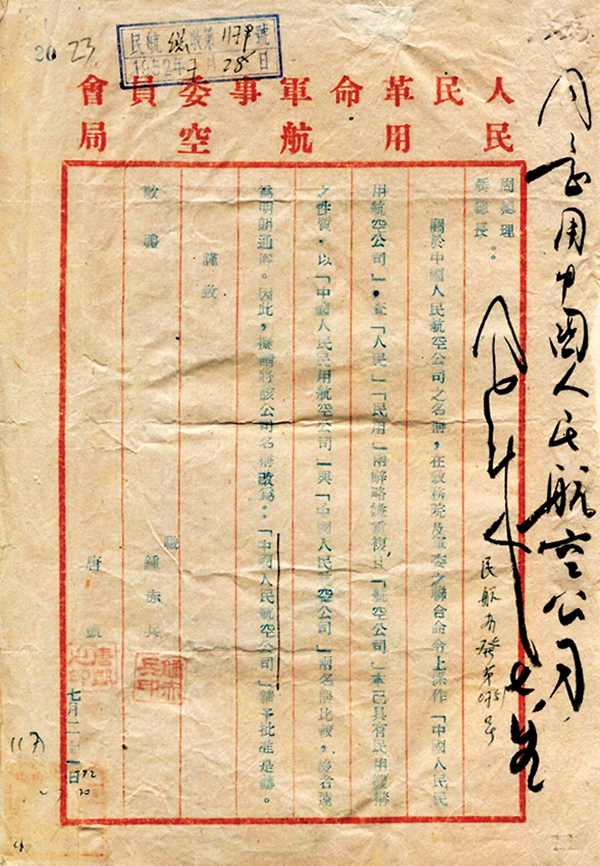 20 23
民航 總收第 號
1952年7月25日
人民革命軍事委員會
民用航空局
同意用中國人民航空公司
周恩来
周總理
聶總長：
關於中國人民航空公司之名稱，在政務院及軍委之聯合命令上係作「中國人民民
用航空公司」，查「人民」「民用」兩辭略嫌重複，且「航空公司」亦已具有民用機構
之性質，以「中國人民民用航空公司」與「中國人民航空公司」兩名稱比較，後者遠
為明朗通俗。因此，擬請將該公司名稱改為：「中國人民航空公司」請予批准是禱。
謹致
敬禮
職
鍾赤兵
唐凱
七月二十一日
民航办發第 号
鍾赤兵印